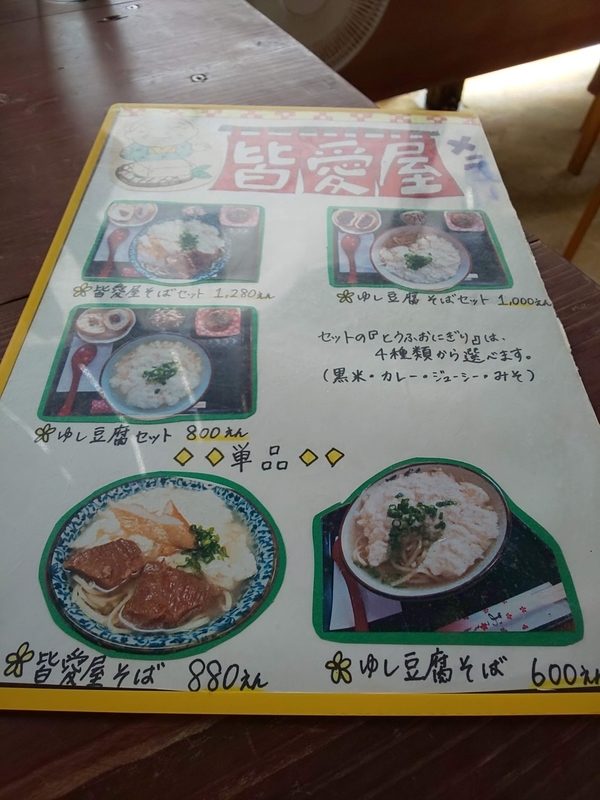 皆愛屋
メニュー
皆愛屋そばセット 1,280えん
ゆし豆腐そばセット 1,000えん
セットの『とうふおにぎり』は、
4種類から選べます。
(黒米・カレー・ジューシー・みそ)
ゆし豆腐セット 800えん
単品
皆愛屋そば 880えん
ゆし豆腐そば 600えん